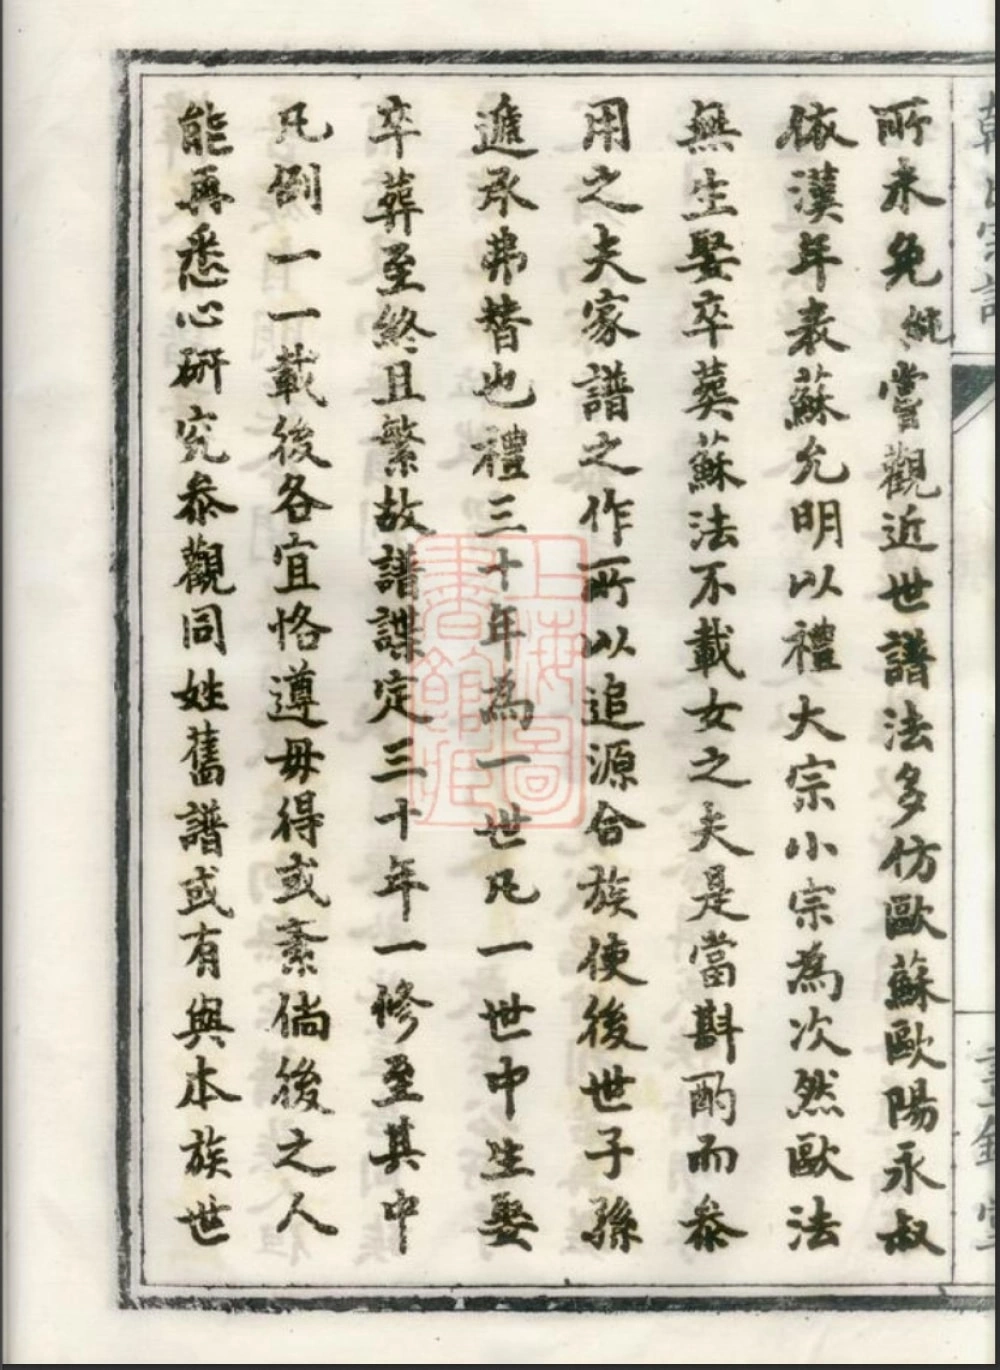 所未免純嘗觀近世譜法多仿歐蘇歐陽永叔
依漢年表蘇允明以禮大宗小宗為次然歐法
無生娶卒葬蘇法不載女之夫是當斟酌而叅
用之夫家譜之作所以追源合族使後世子孫
遞承弗替也禮三十年為一世凡一世中生娶
卒葬至終且繁故譜諜定三十年一修至其中
凡例一一載後各宜恪遵毋得或紊倘後之人
能再悉心研究叅觀同姓舊譜或有與本族世
上海圖書館藏